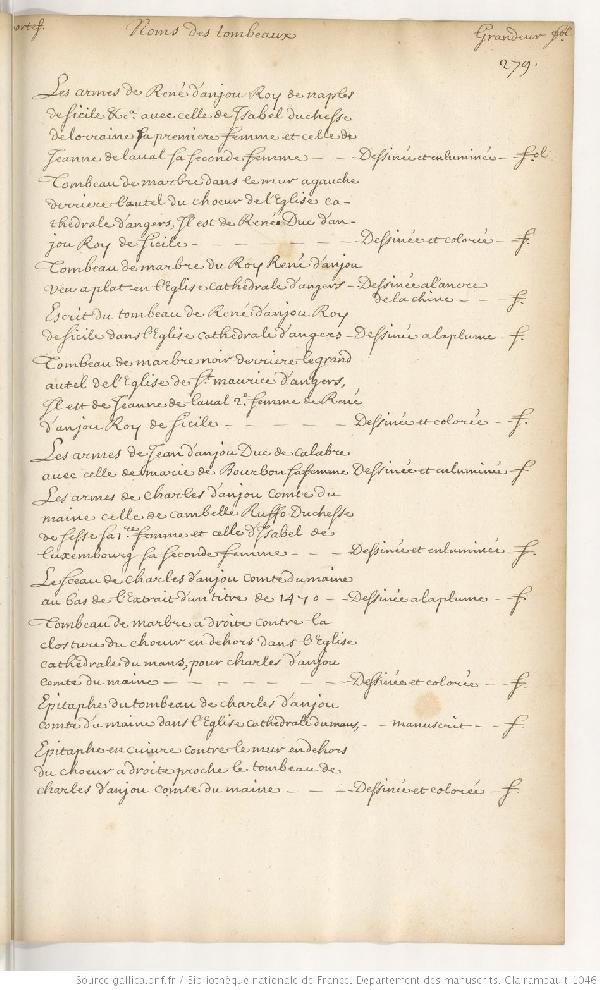 ortef. Noms des tombeaux Grandeur fol.
279.
Les armes de René d'anjou Roy de naples
de sicile &c. avec celle de Isabel duchesse
de lorraine sa premiere femme et celle de
Jeanne de laual sa seconde femme — — Dessinée et enluminée — fol.
Tombeau de marbre dans le mur a gauche
derriere l'autel du choeur de l'Eglise ca-
thedrale d'angers, Il est de Renée Duc d'an-
jou Roy de sicile — — — — — Dessinée et colorée — f.
Tombeau de marbre du Roy René d'anjou
veu a plat en l'Eglise Cathedrale d'angers — Dessinée a l'ancre
de la chine — — f.
Escrit du tombeau de René d'anjou Roy
de sicile dans l'Eglise cathedrale d'angers — Dessinée a la plume — f.
Tombeau de marbre noir derriere le grand
autel de l'Eglise de St. maurice d'angers,
Il est de Jeanne de laual 2e. femme de René
d'anjou Roy de sicile — — — — — Dessinée et colorée — f.
Les armes de Jean d'anjou Duc de calabre
avec celle de marie de Bourbon sa femme Dessinée et enluminée f.
Les armes de Charles d'anjou comte du
maine celle de cambelle Ruffo Duchesse
de sesse sa 1re femme et celle d'Isabel de
luxembourg sa seconde femme — — — Dessinée et enluminée f.
Le sceau de charles d'anjou comte du maine
au bas de l'Extrait d'un titre de 1470 — Dessinée a la plume — f.
Tombeau de marbre a droite contre la
closture du choeur en dehors dans l'Eglise
cathedrale du mans, pour charles d'anjou
comte du maine — — — — — — — Dessinée et colorée — f.
Epitaphe du tombeau de charles d'anjou
comte du maine dans l'Eglise cathedrale du mans, — manuscrit — f.
Epitaphe en cuivre contre le mur en dehors
du choeur a droite proche le tombeau de
charles d'anjou comte du maine — — — Dessinée et colorée — f.
Source gallica.bnf.fr / Bibliothèque nationale de France. Département des manuscrits. Clairambault 1046